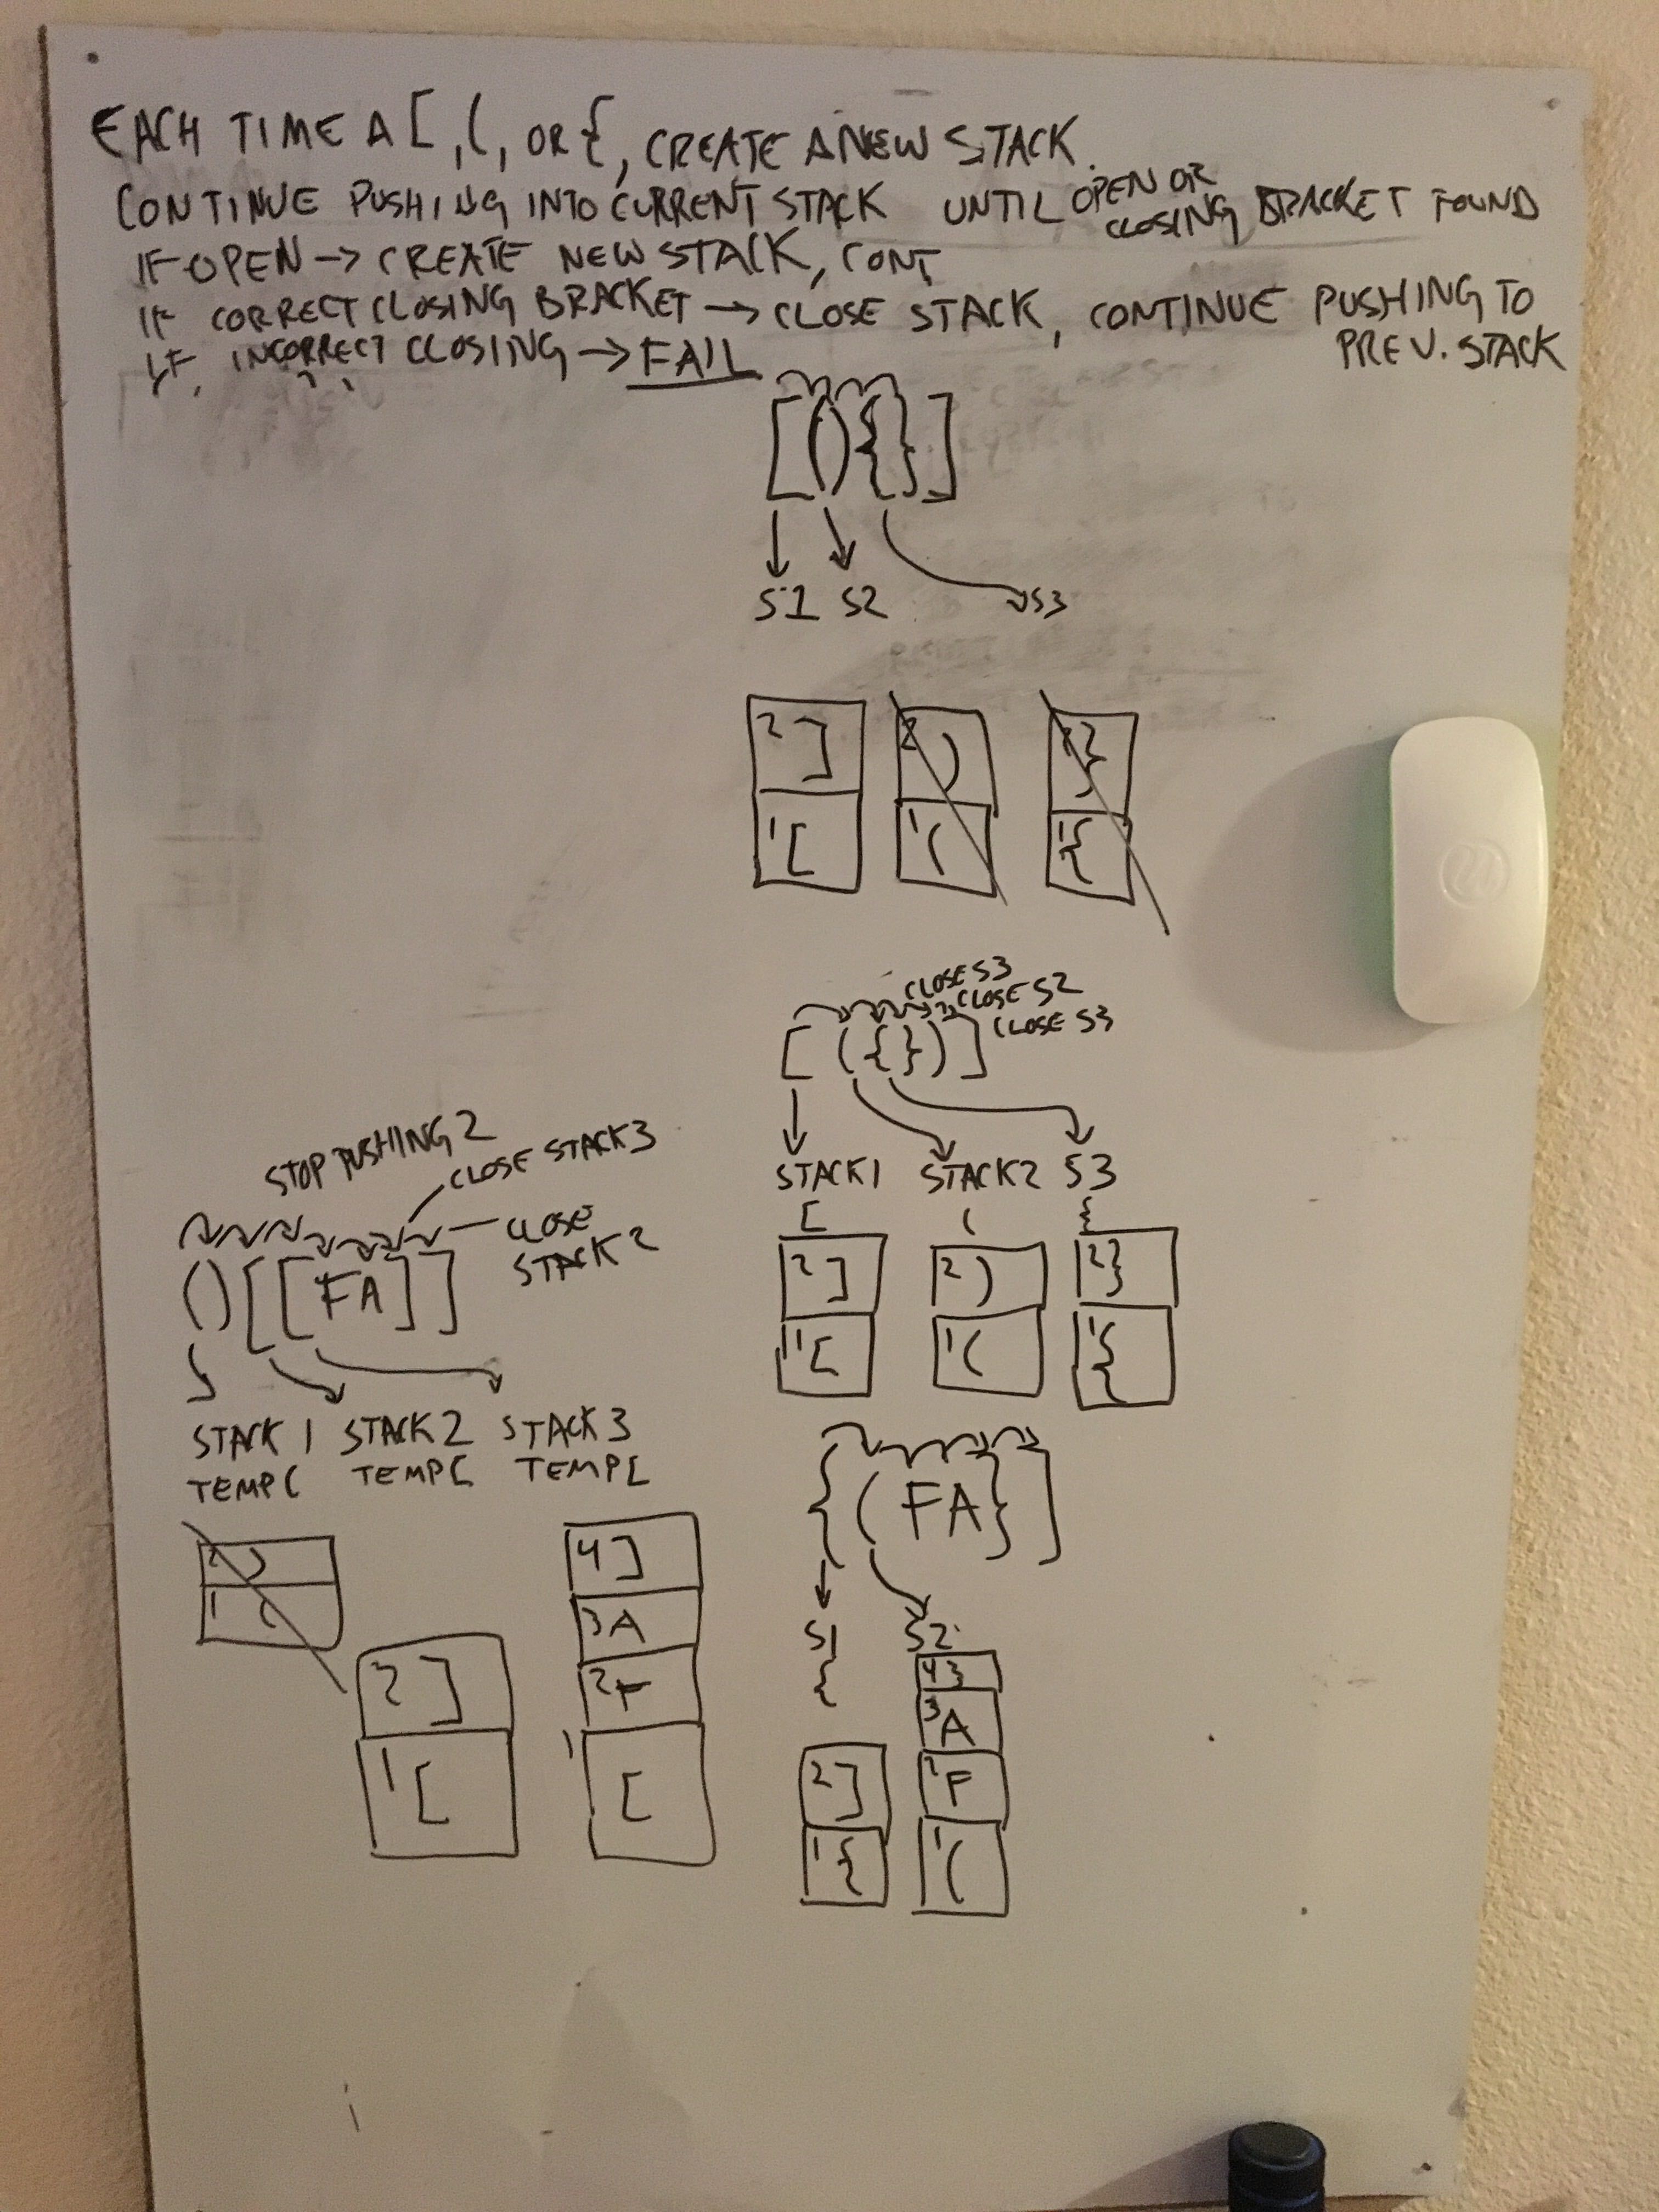 EACH TIME A [, (, OR {, CREATE A NEW STACK.
CONTINUE PUSHING INTO CURRENT STACK UNTIL OPEN OR CLOSING BRACKET FOUND
IF OPEN → CREATE NEW STACK, CONT
IF CORRECT CLOSING BRACKET → CLOSE STACK, CONTINUE PUSHING TO PREV. STACK
IF INCORRECT CLOSING → FAIL
[(){}]
S1 S2 S3
2] 2) 2}
1[ 1( 1{
CLOSE S3
CLOSE S2
CLOSE S3
[({})]
STACK1 STACK2 S3
[ ( {
2] 2) 2}
1[ 1( 1{
STOP PUSHING 2
CLOSE STACK 3
CLOSE STACK 2
()[[FA]]
STACK 1 STACK 2 STACK 3
TEMP( TEMP[ TEMP[
2)
1(
2]
1[
4]
3A
2F
1[
{(FA}]
S1 S2
{
2]
1{
4}
3A
2F
1(